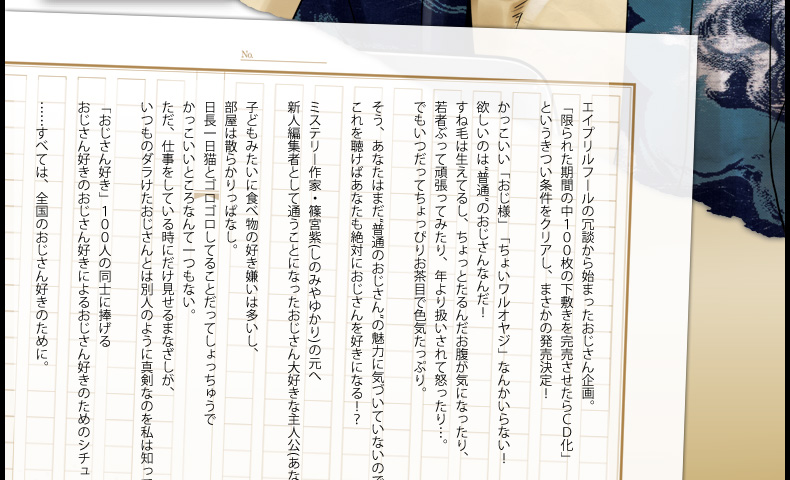 No.
エイプリルフールの冗談から始まったおじさん企画。
「限られた期間の中１００枚の下敷きを完売させたらＣＤ化」
というきつい条件をクリアし、まさかの発売決定！
かっこいい「おじ様」「ちょいワルオヤジ」なんかいらない！
欲しいのは“普通”のおじさんなんだ！
すね毛は生えてるし、ちょっとたるんだお腹が気になったり、
若者ぶって頑張ってみたり、年より扱いされて怒ったり…。
でもいつだってちょっぴりお茶目で色気たっぷり。
そう、あなたはまだ“普通のおじさん”の魅力に気づいていないので
これを聴けばあなたも絶対におじさんを好きになる！？
ミステリー作家・篠宮紫(しのみやゆかり)の元へ
新人編集者として通うことになったおじさん大好きな主人公(あな
子どもみたいに食べ物の好き嫌いは多いし、
部屋は散らかりっぱなし。
日長一日猫とゴロゴロしてることだってしょっちゅうで
かっこいいところなんて一つもない。
ただ、仕事をしている時にだけ見せるまなざしが、
いつものダラけたおじさんとは別人のように真剣なのを私は知っ
「おじさん好き」１００人の同士に捧げる
おじさん好きのおじさん好きによるおじさん好きのためのシチュ
……すべては、全国のおじさん好きのために。